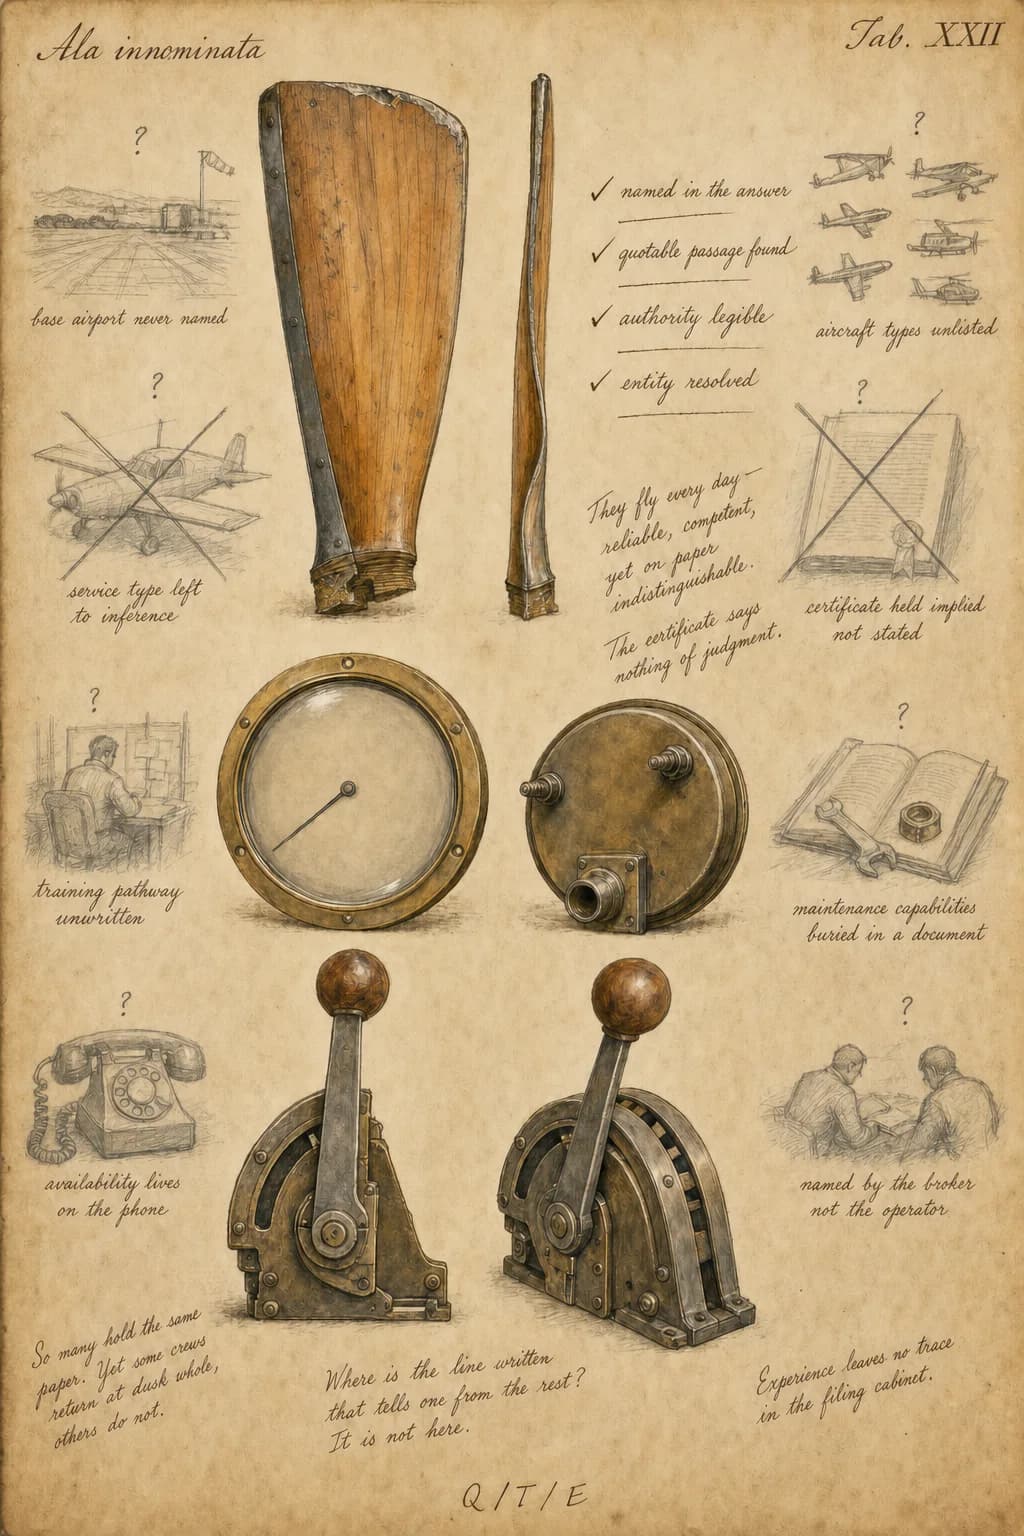 Ala innominata
Tab. XXII
?
base airport never named
✓ named in the answer
✓ quotable passage found
✓ authority legible
✓ entity resolved
?
aircraft types unlisted
?
service type left
to inference
They fly every day—
reliable, competent,
yet on paper
indistinguishable.
The certificate says
nothing of judgment.
?
certificate held implied
not stated
?
training pathway
unwritten
?
maintenance capabilities
buried in a document
?
availability lives
on the phone
?
named by the broker
not the operator
So many hold the same
paper. Yet some crews
return at dusk whole,
others do not.
Where is the line written
that tells one from the rest?
It is not here.
Experience leaves no trace
in the filing cabinet.
Q / T / E